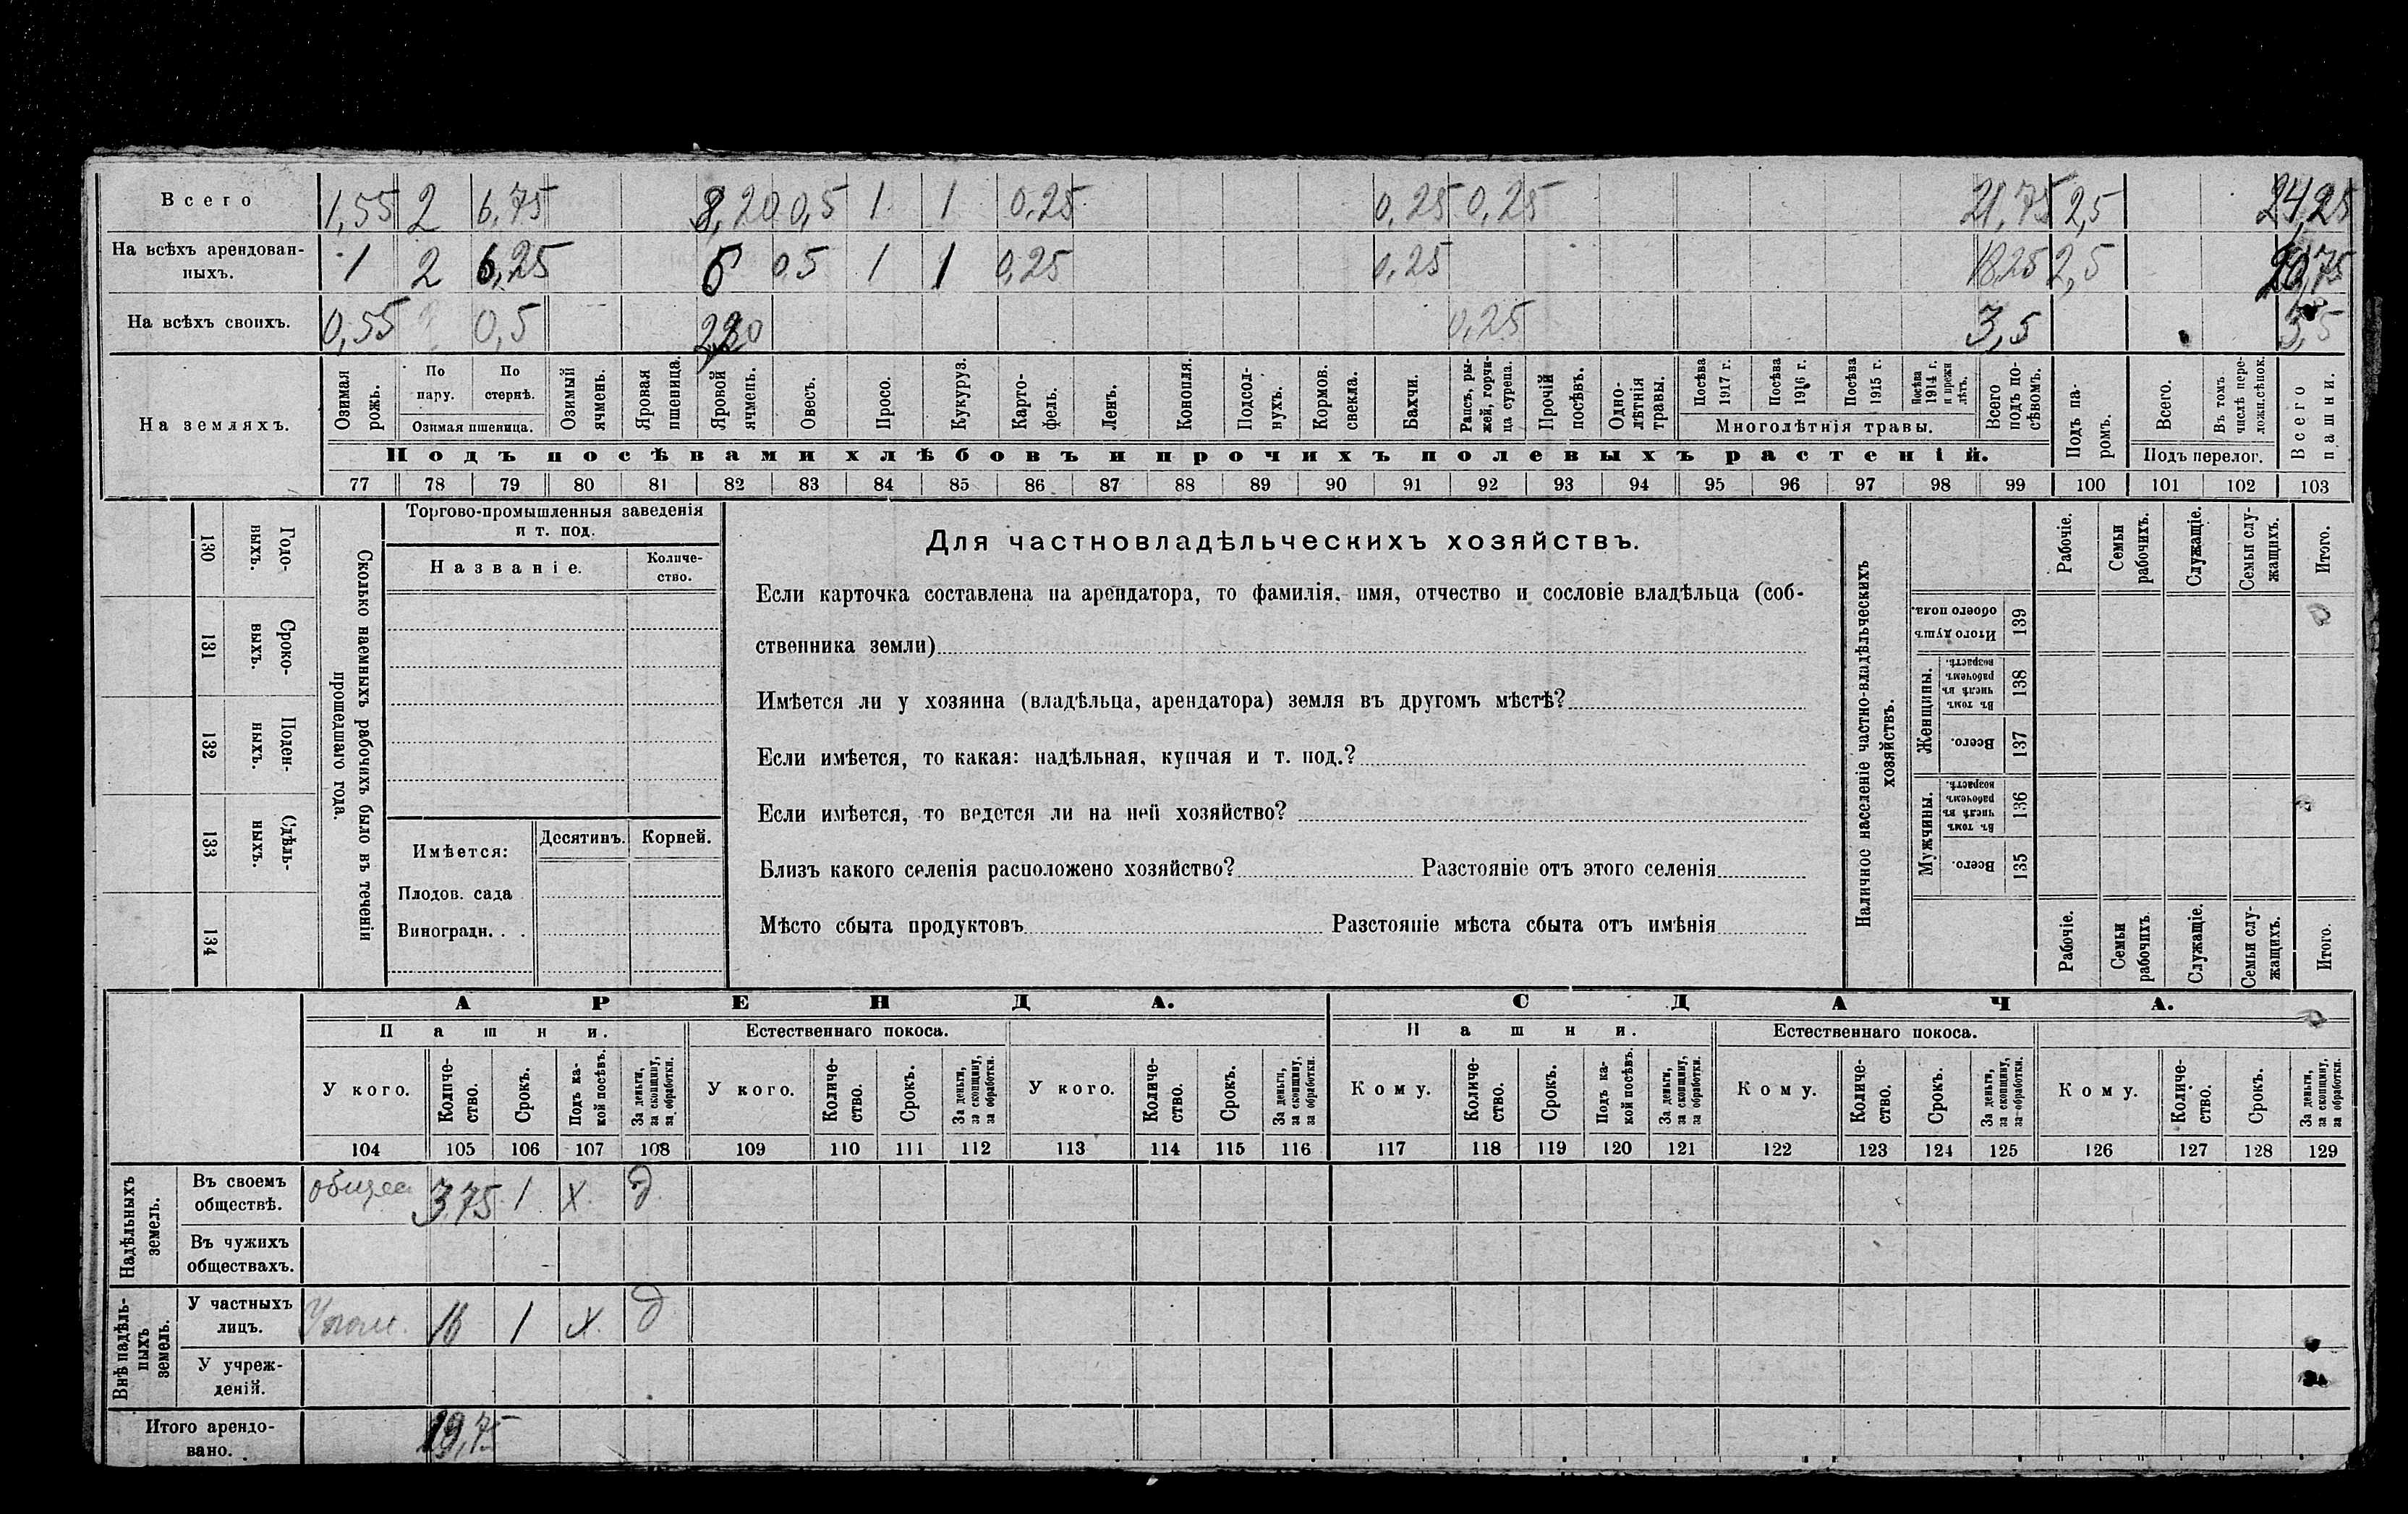 Всего 1,55 2 6,75 8,20 0,5 1 1 0,25 0,25 0,25 21,75 2,5 24,25
На всѣхъ арендован-
ныхъ. 1 2 6,25 6 0,5 1 1 0,25 0,25 18,25 2,5 20,75
На всѣхъ своихъ. 0,55 0,5 2,20 0,25 3,5 3,5
На земляхъ.
Озимая рожь.
По пару.
По стернѣ.
Озимая пшеница.
Озимый ячмень.
Яровая пшеница.
Яровой ячмень.
Овесъ.
Просо.
Кукуруз.
Карто-
фель.
Ленъ.
Конопля.
Подсол-
нухъ.
Кормов. свекла.
Бахчи.
Рапсъ, ры-
жей, горчи-
ца сурепа.
Прочій посѣвъ.
Одно-
лѣтнія травы.
Посѣва 1917 г.
Посѣва 1916 г.
Посѣва 1915 г.
Посѣва 1914 г. и прежн лѣтъ.
Многолѣтнія травы.
Всего подъ по-
сѣвомъ.
Подъ па-
ромъ.
Всего.
Въ томъ числѣ пере-
ложн.сѣнок.
Подъ перелог.
Всего пашни.
Подъ посѣвами хлѣбовъ и прочихъ полевыхъ растеній.
77 78 79 80 81 82 83 84 85 86 87 88 89 90 91 92 93 94 95 96 97 98 99 100 101 102 103
130 Годо-
выхъ.
131 Сроко-
выхъ.
132 Поден-
ныхъ.
133 Сдѣль-
ныхъ.
134
Сколько наемныхъ рабочихъ было въ теченіи
прошедшаго года.
Торгово-промышленныя заведенія
и т. под.
Названіе.
Количе-
ство.
Имѣется:
Десятинъ.
Корней.
Плодов. сада
Виноградн. . .
Для частновладѣльческихъ хозяйствъ.
Если карточка составлена на арендатора, то фамилія, имя, отчество и сословіе владѣльца (соб-
ственника земли)
Имѣется ли у хозяина (владѣльца, арендатора) земля въ другомъ мѣстѣ?
Если имѣется, то какая: надѣльная, купчая и т. под.?
Если имѣется, то ведется ли на ней хозяйство?
Близъ какого селенія расположено хозяйство? Разстояніе отъ этого селенія
Мѣсто сбыта продуктовъ Разстояніе мѣста сбыта отъ имѣнія
Наличное населеніе частно-владѣльческихъ
хозяйствъ.
Рабочіе.
Семьи рабочихъ.
Служащіе.
Семьи слу-
жащихъ.
Итого.
Итого душъ обоего пола. 139
Женщины.
Въ томъ числѣ въ рабочемъ возрастѣ. 138
Всего. 137
Мужчины.
Въ томъ числѣ въ рабочемъ возрастѣ. 136
Всего. 135
Рабочіе.
Семьи рабочихъ.
Служащіе.
Семьи слу-
жащихъ.
Итого.
АРЕНДА.
СДАЧА.
Пашни.
Естественнаго покоса.
Пашни.
Естественнаго покоса.
У кого.
Количе-
ство.
Срокъ.
Подъ ка-
кой посѣвъ.
За деньги, за скопщину, за обработки.
У кого.
Количе-
ство.
Срокъ.
За деньги, за скопщину, за обработки.
У кого.
Количе-
ство.
Срокъ.
За деньги, за скопщину, за обработки.
Кому.
Количе-
ство.
Срокъ.
Подъ ка-
кой посѣвъ.
За деньги, за скопщину, за обработки.
Кому.
Количе-
ство.
Срокъ.
За деньги, за скопщину, за обработки.
Кому.
Количе-
ство.
Срокъ.
За деньги, за скопщину, за обработки.
104 105 106 107 108 109 110 111 112 113 114 115 116 117 118 119 120 121 122 123 124 125 126 127 128 129
Надѣльныхъ земель.
Въ своемъ
обществѣ. 3,75 1 х. д.
Въ чужихъ
обществахъ.
Внѣ надѣль-
ныхъ земель.
У частныхъ
лицъ. 16 1 х. д
У учреж-
деній.
Итого арендо-
вано. 19,75